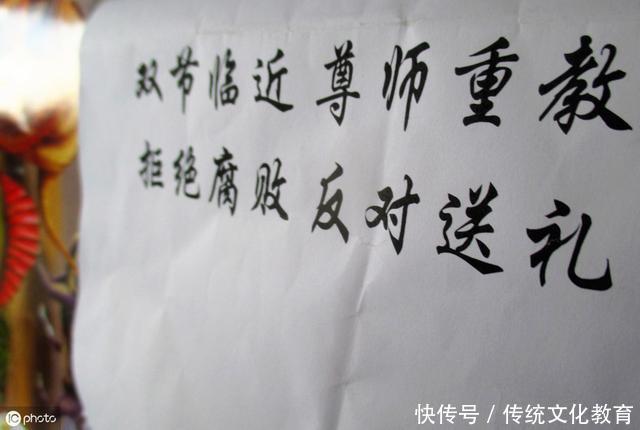 双节临近尊师重教
拒绝腐败反对送礼
快传号/传统文化教育
IC photo